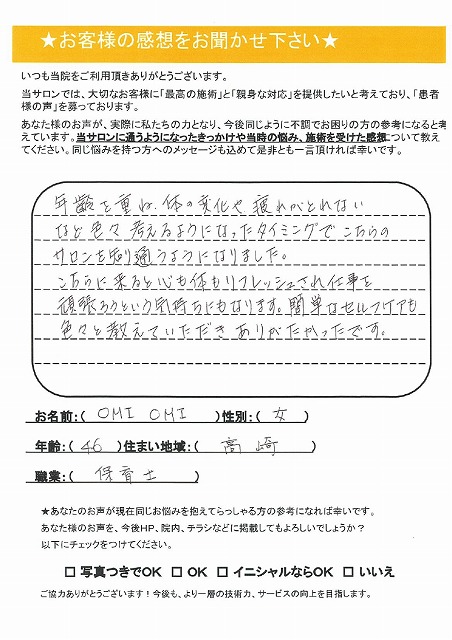 ★お客様の感想をお聞かせ下さい★
いつも当院をご利用頂きありがとうございます。
当サロンでは、大切なお客様に「最高の施術」と「親身な対応」を提供したいと考えており、「患者
様の声」を募っております。
あなた様のお声が、実際に私たちの力となり、今後同じように不調でお困りの方の参考になると考
えています。当サロンに通うようになったきっかけや当時の悩み、施術を受けた感想について教え
てください。同じ悩みを持つ方へのメッセージも込めて是非とも一言頂ければ幸いです。
年齢を重ね、体の変化や疲れがとれない
など色々考えるようになったタイミングでこちらの
サロンを知り通うようになりました。
こちらに来ると心も体もリフレッシュされ仕事を
頑張ろうという気持ちにもなります。簡単なセルフケアも
色々と教えていただきありがたかったです。
お名前:( OMI OMI )性別:( 女 )
年齢:( 46 )住まい地域:( 高崎 )
職業:( 保育士 )
★あなたのお声が現在同じお悩みを抱えてらっしゃる方の参考になれば幸いです。
あなた様のお声を、今後HP、院内、チラシなどに掲載してもよろしいでしょうか?
以下にチェックをつけてください。
□ 写真つきでOK □ OK □ イニシャルならOK □ いいえ
ご協力ありがとうございます!今後も、より一層の技術力、サービスの向上を目指します。